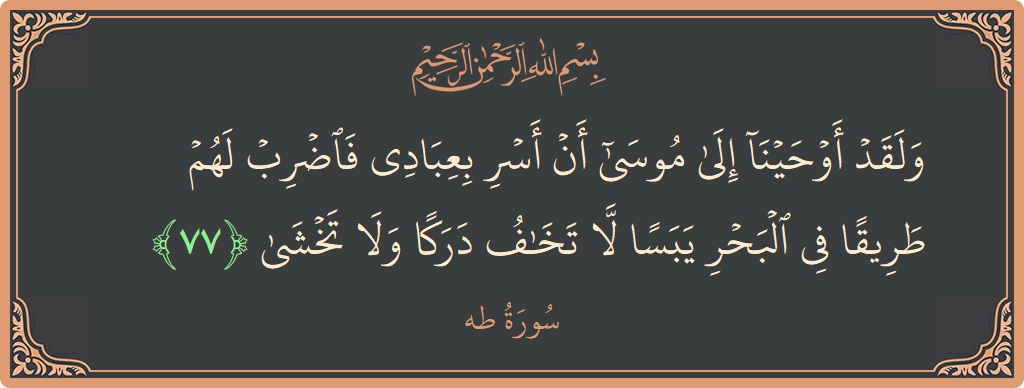 بِسْمِ اللَّهِ الرَّحْمَٰنِ الرَّحِيمِ
وَلَقَدْ أَوْحَيْنَآ إِلَىٰ مُوسَىٰٓ أَنْ أَسْرِ بِعِبَادِى فَٱضْرِبْ لَهُمْ
طَرِيقًا فِى ٱلْبَحْرِ يَبَسًا لَّا تَخَـٰفُ دَرَكًا وَلَا تَخْشَىٰ ﴿٧٧﴾
سُورَةُ طه